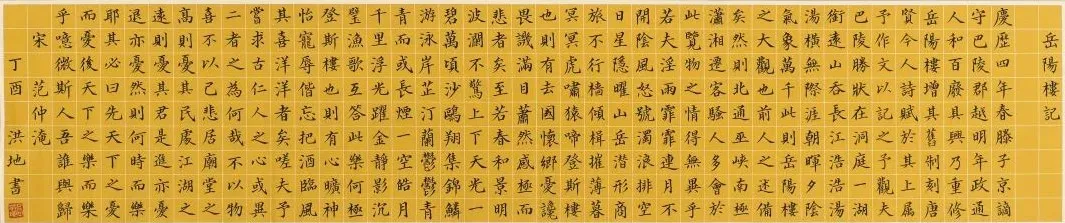 岳陽樓記
慶歷四年春滕子京謫
守巴陵郡越明年政通
人和百廢具興乃重修
岳陽樓增其舊制刻唐
賢今人詩賦於其上屬
予作文以記之予觀夫
巴陵勝狀在洞庭一湖
銜遠山吞長江浩浩湯
湯橫無際涯朝暉夕陰
氣象萬千此則岳陽樓
之大觀也前人之述備
矣然則北通巫峽南極
瀟湘遷客騷人多會於
此覽物之情得無異乎
若夫淫雨霏霏連月不
開陰風怒號濁浪排空
日星隱曜山岳潛形商
旅不行檣傾楫摧薄暮
冥冥虎嘯猿啼登斯樓
也則有去國懷鄉憂讒
畏譏滿目蕭然感極而
悲者矣至若春和景明
波瀾不驚上下天光一
碧萬頃沙鷗翔集錦鱗
游泳岸芷汀蘭鬱鬱青
青而或長煙一空皓月
千里浮光躍金靜影沉
璧漁歌互答此樂何極
登斯樓也則有心曠神
怡寵辱偕忘把酒臨風
其喜洋洋者矣嗟夫予
嘗求古仁人之心或異
二者之為何哉不以物
喜不以己悲居廟堂之
高則憂其民處江湖之
遠則憂其君是進亦憂
退亦憂然則何時而樂
耶其必曰先天下之憂
而憂後天下之樂而樂
乎噫微斯人吾誰與歸
宋 范仲淹
丁酉 洪地書